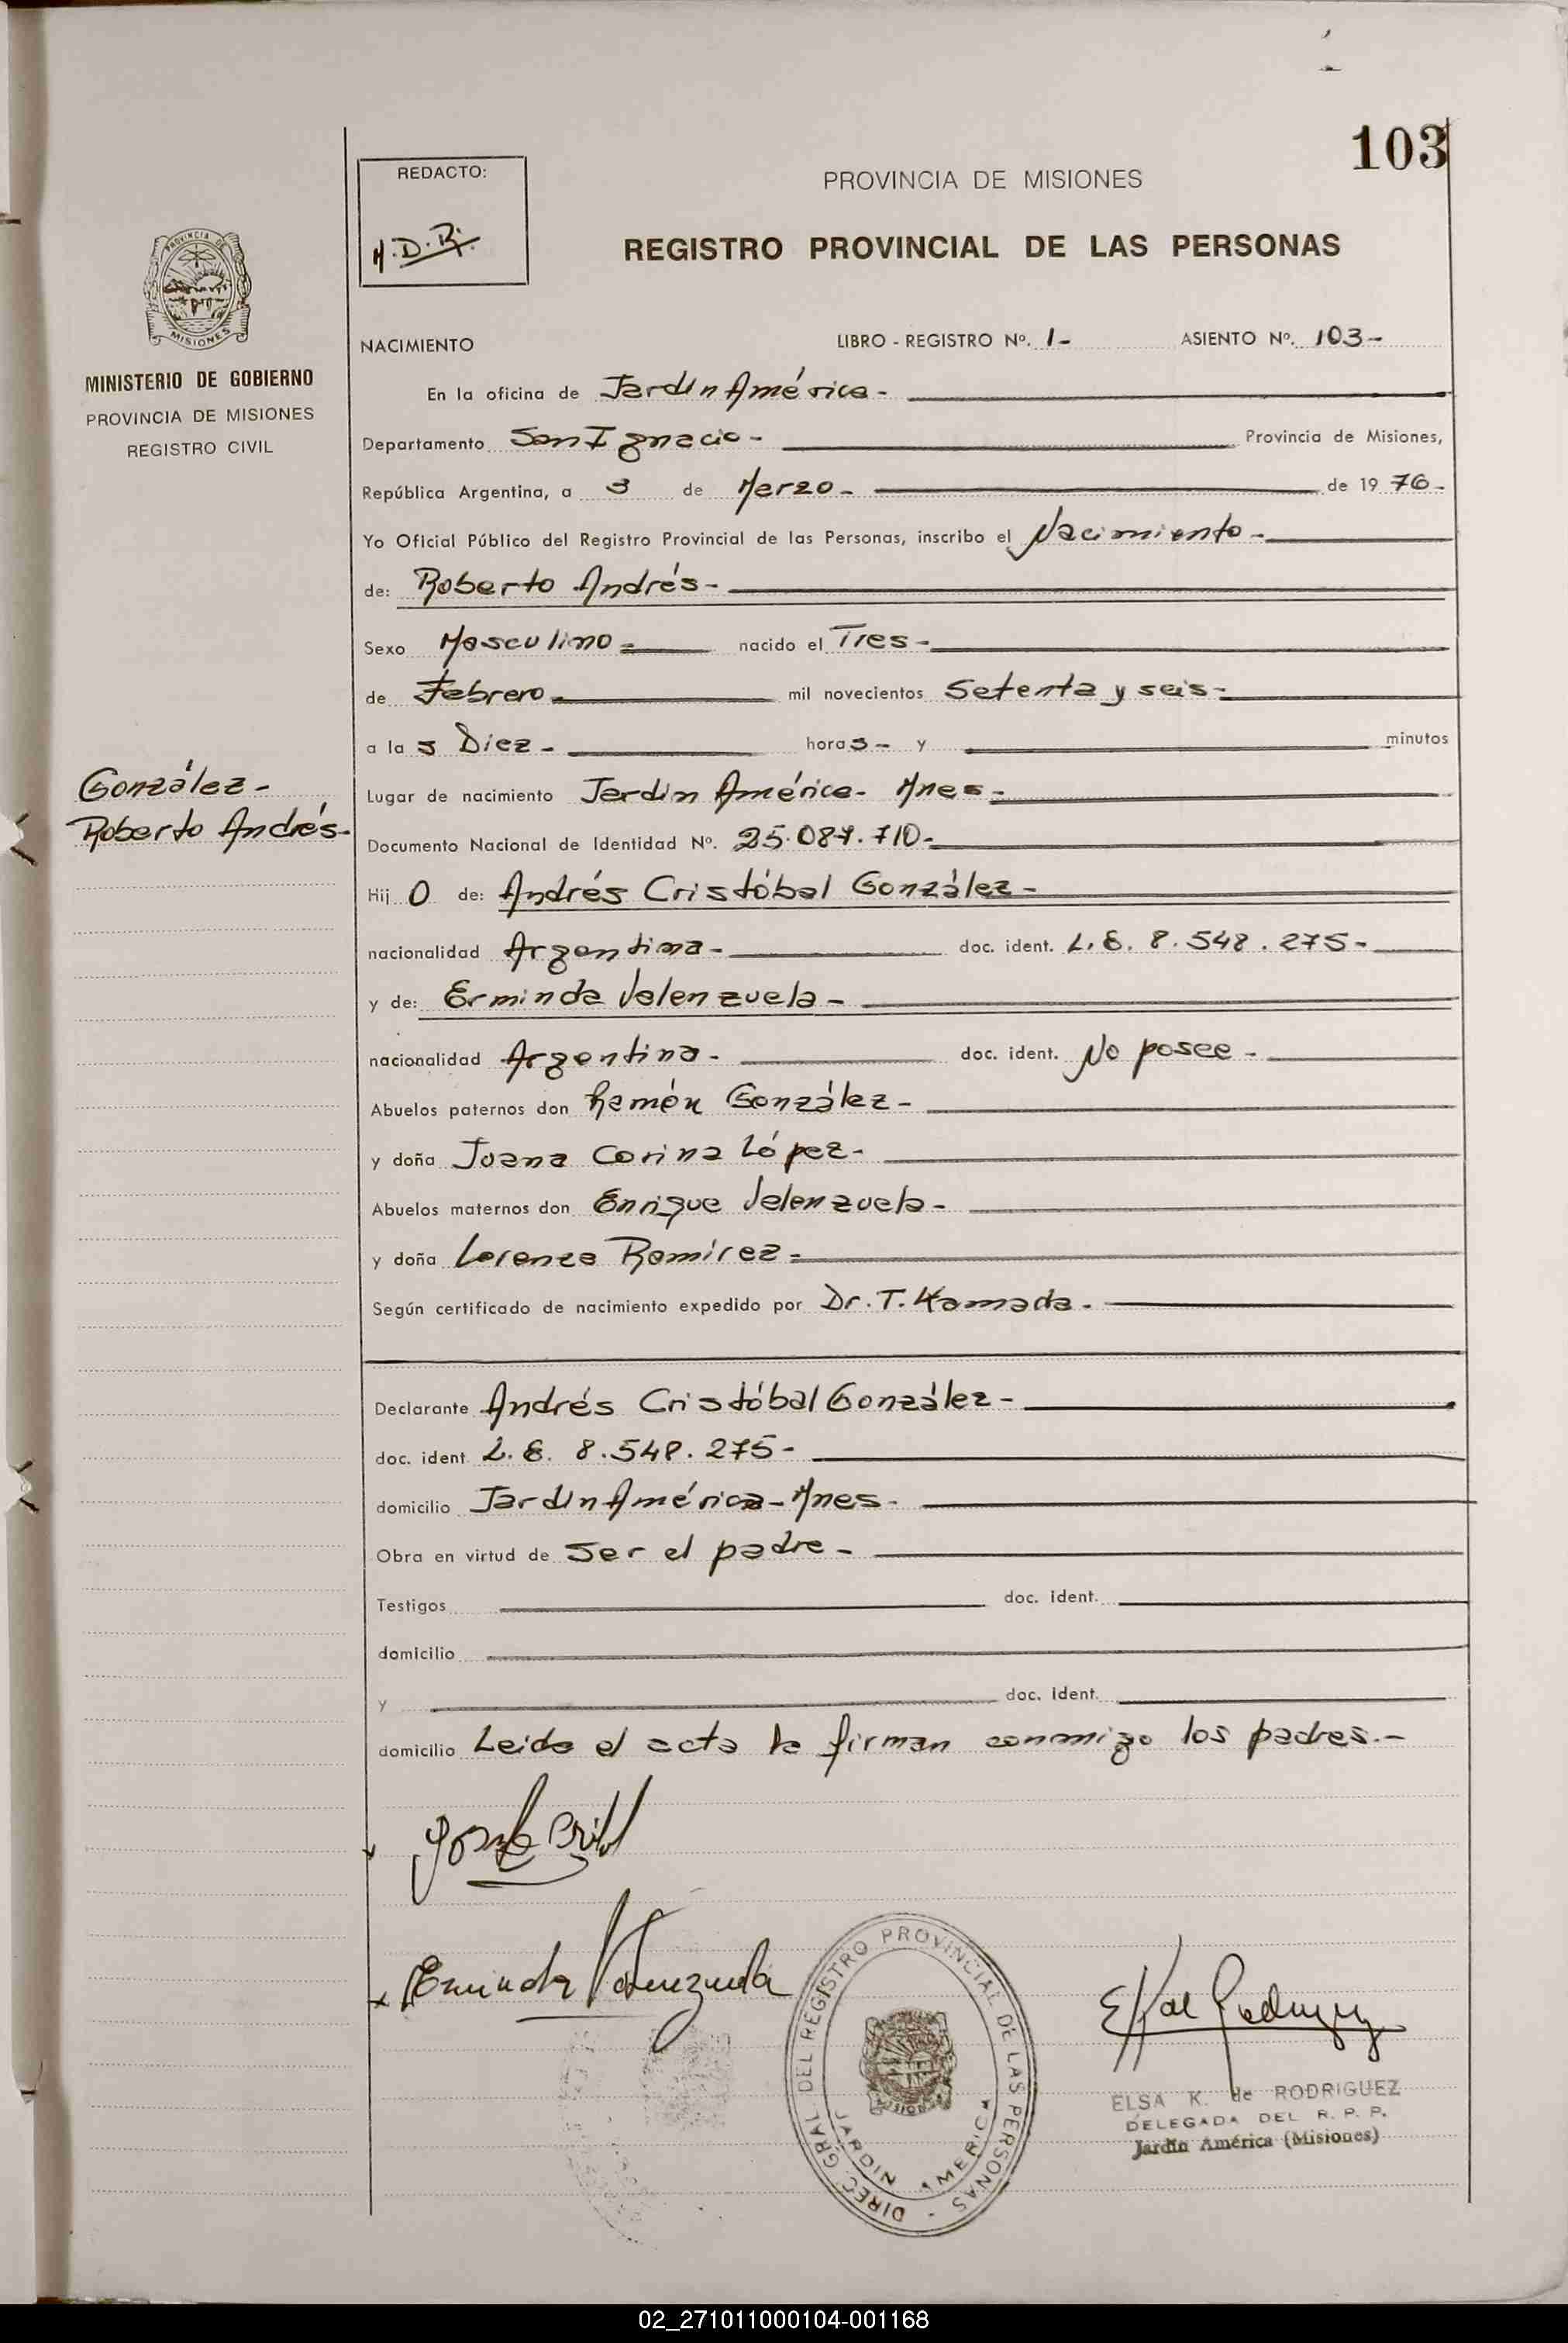 103
REDACTO:
PROVINCIA DE MISIONES
REGISTRO PROVINCIAL DE LAS PERSONAS
PROVINCIA DE
MISIONES
MINISTERIO DE GOBIERNO
PROVINCIA DE MISIONES
REGISTRO CIVIL
NACIMIENTO LIBRO - REGISTRO Nº. 1- ASIENTO Nº. 103-
En la oficina de Jardín América-
Departamento San Ignacio- Provincia de Misiones,
República Argentina, a 3 de Marzo- de 19 76-
Yo Oficial Público del Registro Provincial de las Personas, inscribo el Nacimiento-
de: Roberto Andrés-
Sexo Masculino= nacido el Tres-
de Febrero- mil novecientos Setenta y seis-
a las Diez- horas- y minutos
González-
Roberto Andrés-
Lugar de nacimiento Jardín América- Mnes-
Documento Nacional de Identidad Nº. 25.087.710-
Hijo de: Andrés Cristóbal González-
nacionalidad Argentina- doc. ident. L.E. 8.548.275-
y de: Erminda Valenzuela-
nacionalidad Argentina- doc. ident. No posee-
Abuelos paternos don Ramón González-
y doña Juana Corina López-
Abuelos maternos don Enrique Valenzuela-
y doña Lorenza Ramírez=
Según certificado de nacimiento expedido por Dr. T. Kamada-
Declarante Andrés Cristóbal González-
doc. ident. L.E. 8.548.275-
domicilio Jardín América- Mnes-
Obra en virtud de Ser el padre-
Testigos doc. ident.
domicilio
y doc. ident.
domicilio Leida el acta la firman conmigo los padres.-
Erminda Valenzuela
DIREC. GRAL DEL REGISTRO PROVINCIAL DE LAS PERSONAS -
JARDIN AMERICA
ELSA K. de RODRIGUEZ
DELEGADA DEL R. P. P.
Jardín América (Misiones)
02_271011000104-001168